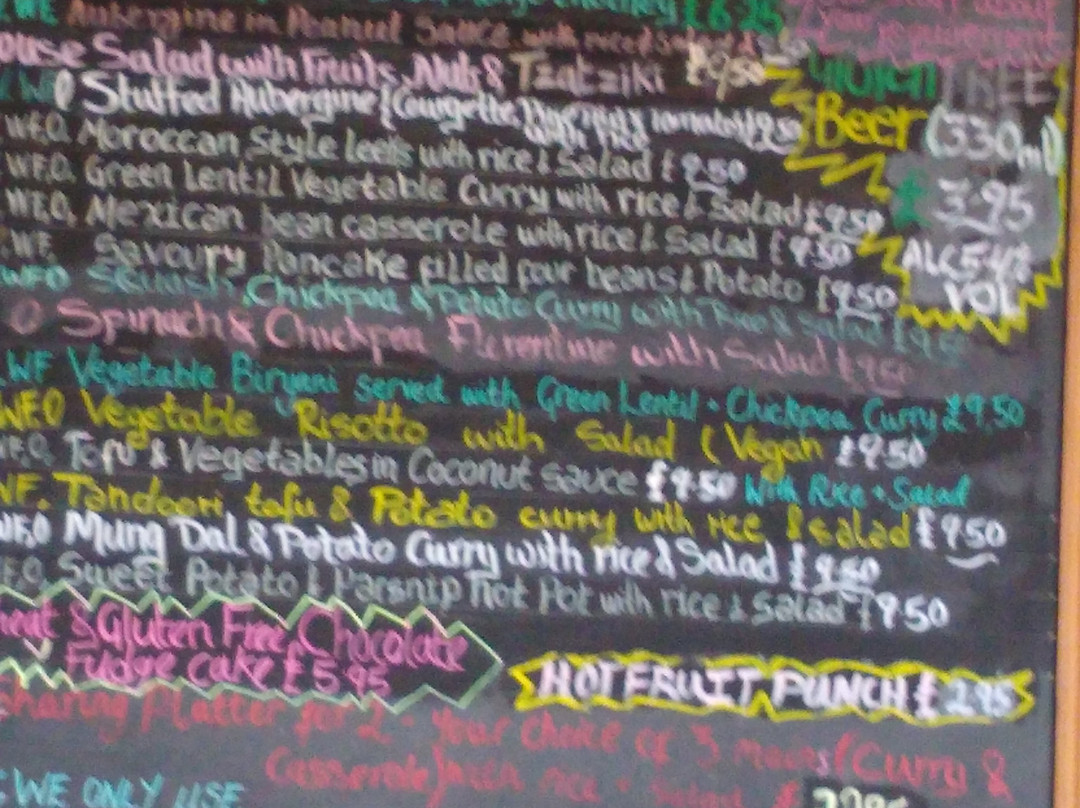 £6.25
Aubergine in Peanut Sauce with rice & Salad
House Salad with Fruits, Nuts & Tzatziki £9.50
Stuffed Aubergine (Courgette,
with rice
W.F.O. Moroccan Style leeks with rice & Salad £9.50
W.F.O. Green Lentil Vegetable Curry with rice & Salad £9.50
W.F.O. Mexican bean casserole with rice & Salad £9.50
W.F. Savoury Pancake filled four beans & Potato £9.50
WFO Squash, Chickpea & Potato Curry with Rice & Salad £9.50
O Spinach & Chickpea Florentine with Salad £9.50
WF Vegetable Biryani served with Green Lentil + Chickpea Curry £9.50
W.F.O Vegetable Risotto with Salad (Vegan £9.50
F.O. Tofu & Vegetables in Coconut sauce £9.50 With Rice + Salad
WF. Tandoori tofu & Potato curry with rice & salad £9.50
WFO Mung Dal & Potato Curry with rice & Salad £9.50
F.O. Sweet Potato & Parsnip Hot Pot with rice & salad £9.50
FREE
Beer (330ml)
£3.95
ALC 5.4%
VOL
Wheat & Gluten Free Chocolate
Fudge cake £5.95
HOT FRUIT PUNCH £2.95
Sharing Platter for 2 - Your Choice of 3 mains (Curry &
Casserole) with rice + Salad £
WE ONLY USE